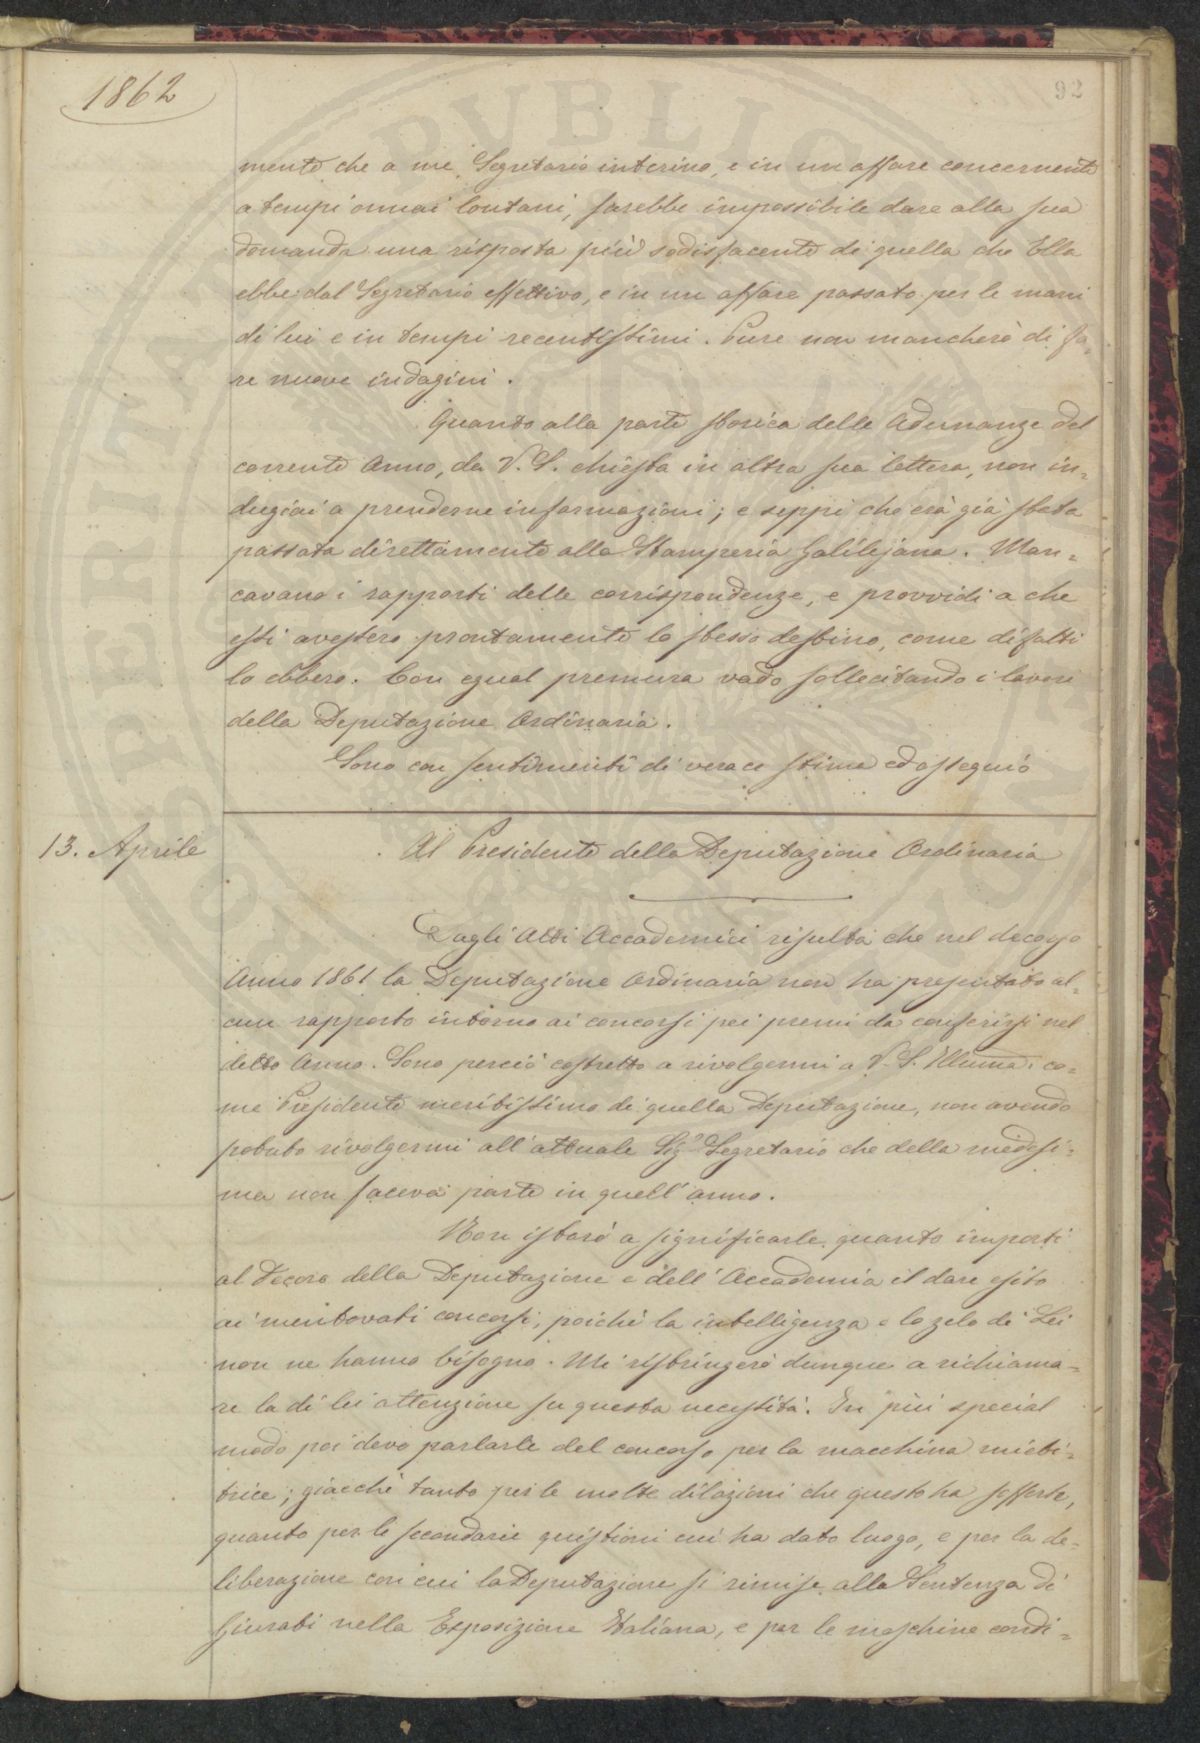 1862
92
mente che a me, Segretario interino, e in un affare concernente
a tempi ormai lontani, sarebbe impossibile dare alla sua
domanda una risposta più sodisfacente di quella che Ella
ebbe dal Segretario effettivo, e in un affare passato per le mani
di lui e in tempi recentissimi. Pure non mancherò di fa-
re nuove indagini.
Quanto alla parte storica delle Adunanze del
corrente Anno, da V. S. chiesta in altra sua lettera, non in=
dugiai a prenderne informazioni; e seppi che era già stata
passata direttamente alla Stamperia Galilejana. Man=
cavano i rapporti delle corrispondenze, e provvidi a che
essi avessero prontamente lo stesso destino, come difatti
lo ebbero. Con egual premura vado sollecitando i lavori
della Deputazione Ordinaria.
Sono con sentimenti di verace stima ed ossequio
13. Aprile
Al Presidente della Deputazione Ordinaria
Dagli Atti Accademici risulta che nel decorso
Anno 1861 la Deputazione Ordinaria non ha presentato al=
cun rapporto intorno ai concorsi pei premi da conferirsi nel
detto Anno. Sono perciò costretto a rivolgermi a V. S. Illuma: co=
me Presidente meritissimo di quella Deputazione, non avendo
potuto rivolgermi all'attuale Sigr Segretario che della medesi=
ma non faceva parte in quell'anno.
Non istarò a significarle quanto importi
al decoro della Deputazione e dell'Accademia il dare esito
ai mentovati concorsi, poichè la intelligenza e lo zelo di Lei
non ne hanno bisogno. Mi ristringerò dunque a richiama=
re la di lei attenzione su questa necessità. In più special
modo poi devo parlarle del concorso per la macchina mieti=
trice; giacchè tanto per le molte dilazioni che questo ha sofferte,
quanto per le secondarie quistioni cui ha dato luogo, e per la de=
liberazione con cui la Deputazione si rimise alla Sentenza di
Giurati nella Esposizione Italiana, e per le meschine condi=